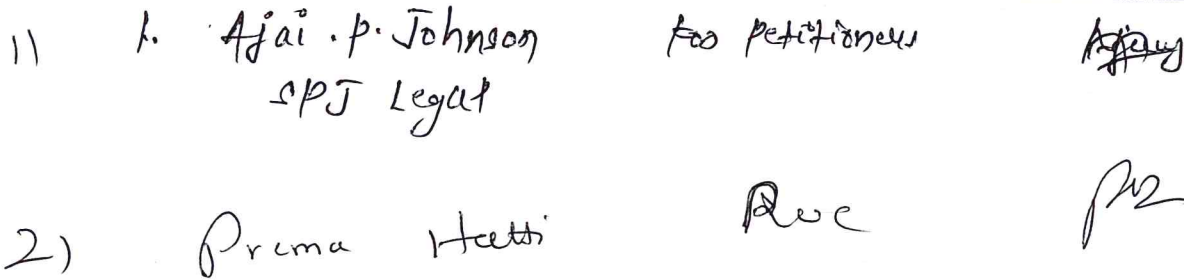 1) 1. Ajai . P. Johnson for petitioners
SPJ Legal
2) Prema Hatti RoC